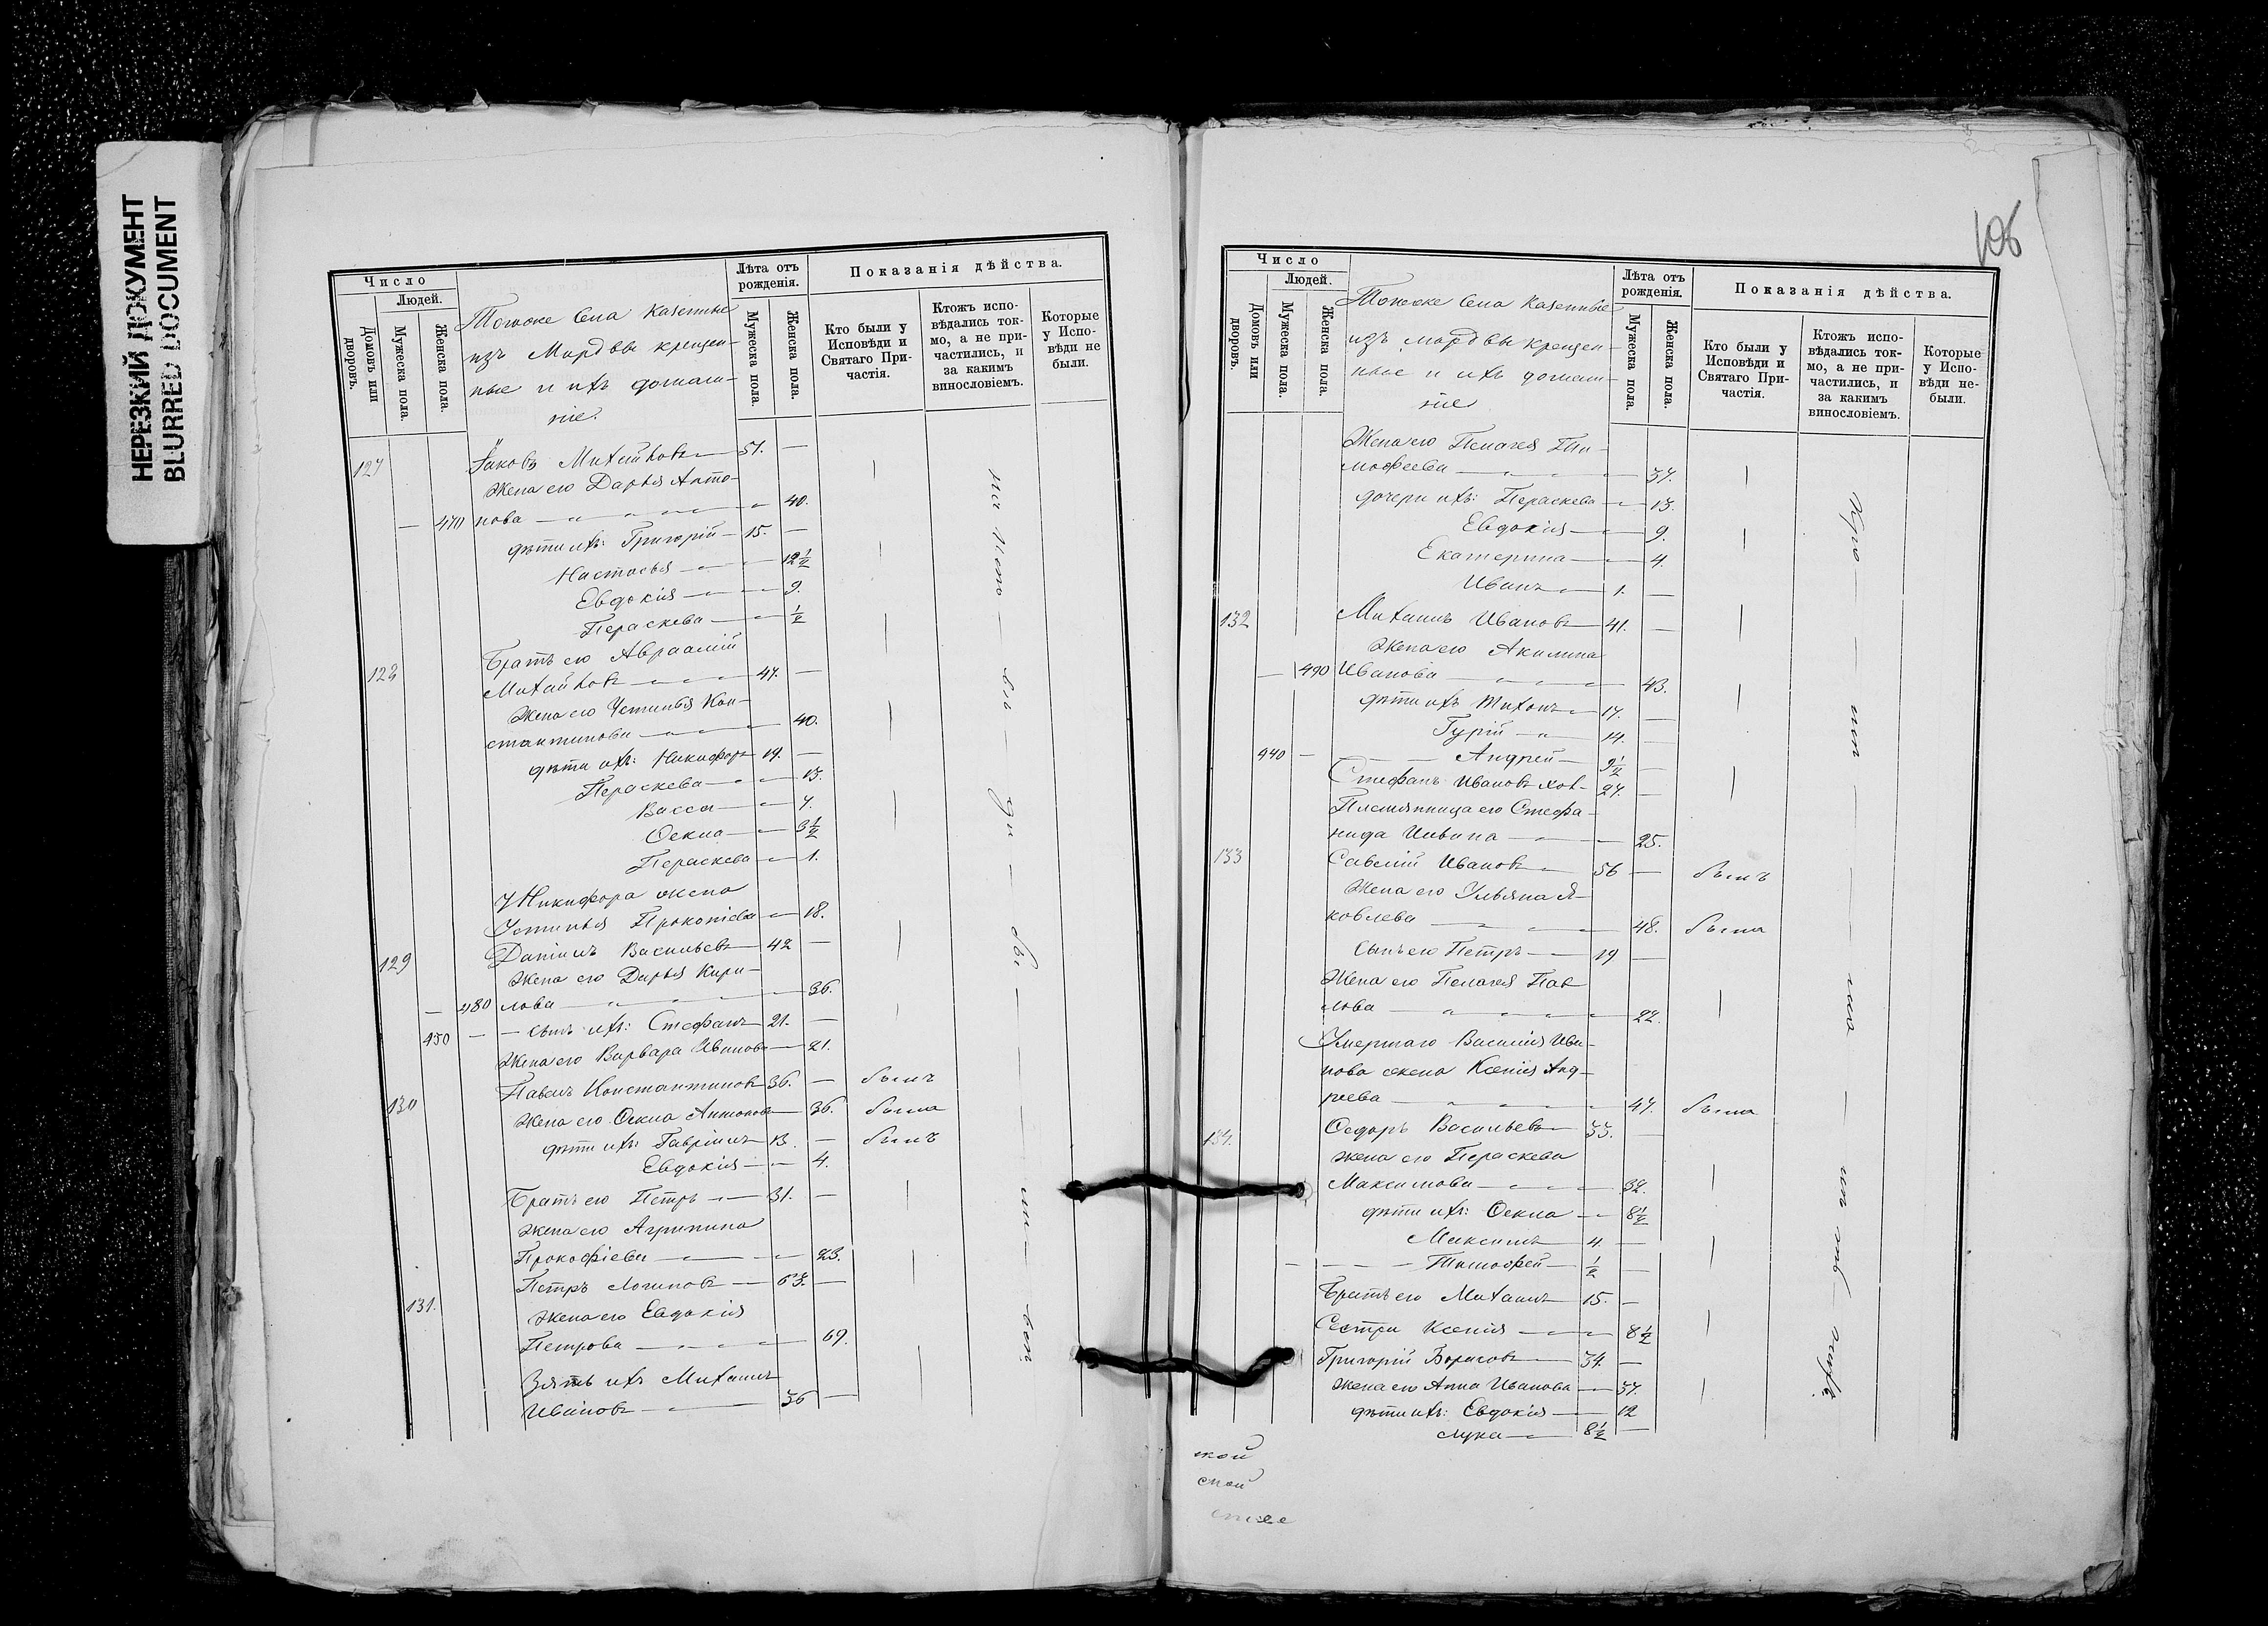 НЕРЕЗКИЙ ДОКУМЕНТ
BLURRED DOCUMENT
Число
Людей.
Домовъ или дворовъ.
Мужеска пола.
Женска пола.
Тогоже Села Казенные
изъ Мордвы крещен-
ные и ихъ домаш-
ніе.
Лѣта отъ рожденія.
Мужеска пола.
Женска пола.
Показанія дѣйства.
Кто были у Исповѣди и Святаго Причастія.
Ктожъ исповѣдались токмо, а не причастились, и за какимъ винословіемъ.
Которые у Исповѣди не были.
127 Іаковъ Михайловъ 51. —
Жена его Дарья Анто-
— 470 нова 40.
дѣти ихъ: Григорій 15. —
Настасья 12 1/2
Евдокія 9.
Пераскева 1/2
128 Братъ его Авраамій
Михайловъ 47. —
Жена его Устинья Кон-
стантинова 40.
дѣти ихъ: Никифоръ 19. —
Пераскева 13.
Васса 7.
Ѳекла 3 1/2
Пераскева 1.
У Никифора жена
Устинья Прокопіева 18.
129 Даніилъ Васильевъ 42 —
Жена его Дарья Кири-
— 480 лова 36.
450 — — сынъ ихъ: Стефанъ 21. —
Жена его Варвара Иванова 21.
130 Павелъ Константиновъ 36. — былъ
Жена его Ѳекла Антонова 36. была
дѣти ихъ: Гавріилъ 13. — былъ
Евдокія 4.
Братъ его Петръ 31. —
Жена его Агрипина
Прокофіева 23.
131. Петръ Логиновъ 63. —
Жена его Евдокія
Петрова 69.
Зять ихъ Михаилъ
Ивановъ 36 —
106
Число
Людей.
Домовъ или дворовъ.
Мужеска пола.
Женска пола.
Тогоже Села Казенные
изъ мордвы крещен-
ные и ихъ домаш-
ніе
Лѣта отъ рожденія.
Мужеска пола.
Женска пола.
Показанія дѣйства.
Кто были у Исповѣди и Святаго Причастія.
Ктожъ исповѣдались токмо, а не причастились, и за какимъ винословіемъ.
Которые у Исповѣди не были.
Жена его Пелагея Ти-
мофеева 37.
дочери ихъ: Пераскева 13.
Евдокія 9.
Екатерина 4.
Иванъ 1. —
132 Михаилъ Ивановъ 41. —
Жена его Акилина
— 490 Иванова 43.
дѣти ихъ Тихонъ 17. —
Гурій 14. —
440 — Андрей 9 1/2 —
Стефанъ Ивановъ хол- 27. —
Племянница его Стефа-
нида 25.
133 Савелій Ивановъ 56 — былъ
Жена его Ульяна Я-
ковлева 48. была
Сынъ его Петръ 19 —
Жена его Пелагея Пав-
лова 22.
Умершаго Василія Ива-
нова жена Ксенія Анд-
реева 47. была
134. Ѳедоръ Васильевъ 33. —
жена его Пераскева
Максимова 32.
дѣти ихъ: Ѳекла 8 1/2
Максимъ 4 —
Тимофей 1/2 —
Братъ его Михаилъ 15. —
Сестра Ксенія 8 1/2
Григорій Борисовъ 34. —
Жена его Анна Иванова 37.
дѣти ихъ: Евдокія 12
Лука 8 1/2 —